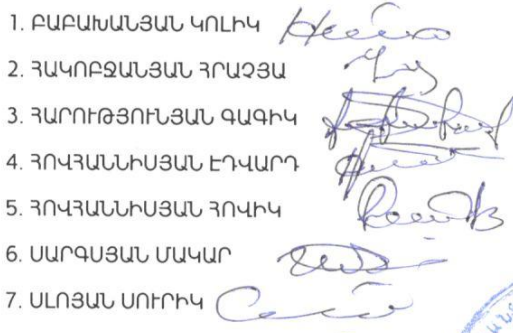 1. ԲԱԲԱԽԱՆՅԱՆ ԿՈԼԻԿ
2. ՀԱԿՈԲՋԱՆՅԱՆ ՀՐԱՉՅԱ
3. ՀԱՐՈՒԹՅՈՒՆՅԱՆ ԳԱԳԻԿ
4. ՀՈՎՀԱՆՆԻՍՅԱՆ ԷԴՎԱՐԴ
5. ՀՈՎՀԱՆՆԻՍՅԱՆ ՀՈՎԻԿ
6. ՍԱՐԳՍՅԱՆ ՄԱԿԱՐ
7. ՍԼՈՅԱՆ ՍՈՒՐԻԿ